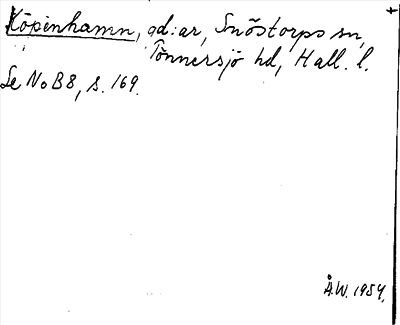 Köpinhamn, gd:ar, Snöstorps sn,
Tönnersjö hd, Hall. l.
Se No B8, s. 169.
Å.W. 1954.